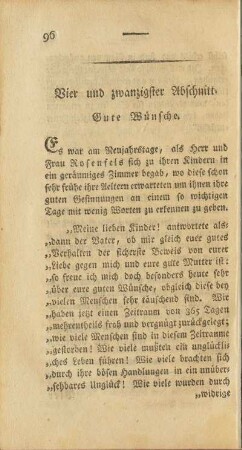 96
Vier und zwanzigster Abschnitt.
Gute Wünsche.
Es war am Neujahrstage, als Herr und
Frau Rosenfels sich zu ihren Kindern in
ein geräumiges Zimmer begab, wo diese schon
sehr frühe ihre Aeltern erwarteten um ihnen ihre
guten Gesinnungen an einem so wichtigen
Tage mit wenig Worten zu erkennen zu geben.
„Meine lieben Kinder! antwortete als-
„dann der Vater, ob mir gleich euer gutes
„Verhalten der sicherste Beweis von eurer
„Liebe gegen mich und eure gute Mutter ist:
„so freue ich mich doch besonders heute sehr
„über eure guten Wünsche, obgleich diese bey
„vielen Menschen sehr täuschend sind. Wir
„haben jetzt einen Zeitraum von 365 Tagen
„mehrentheils froh und vergnügt zurückgelegt;
„wie viele Menschen sind in diesem Zeitraume
„gestorben! Wie viele mußten ein unglückli-
„ches Leben führen! Wie viele brachten sich
„durch ihre bösen Handlungen in ein unüber-
„sehbares Unglück! Wie viele wurden durch
„widrige